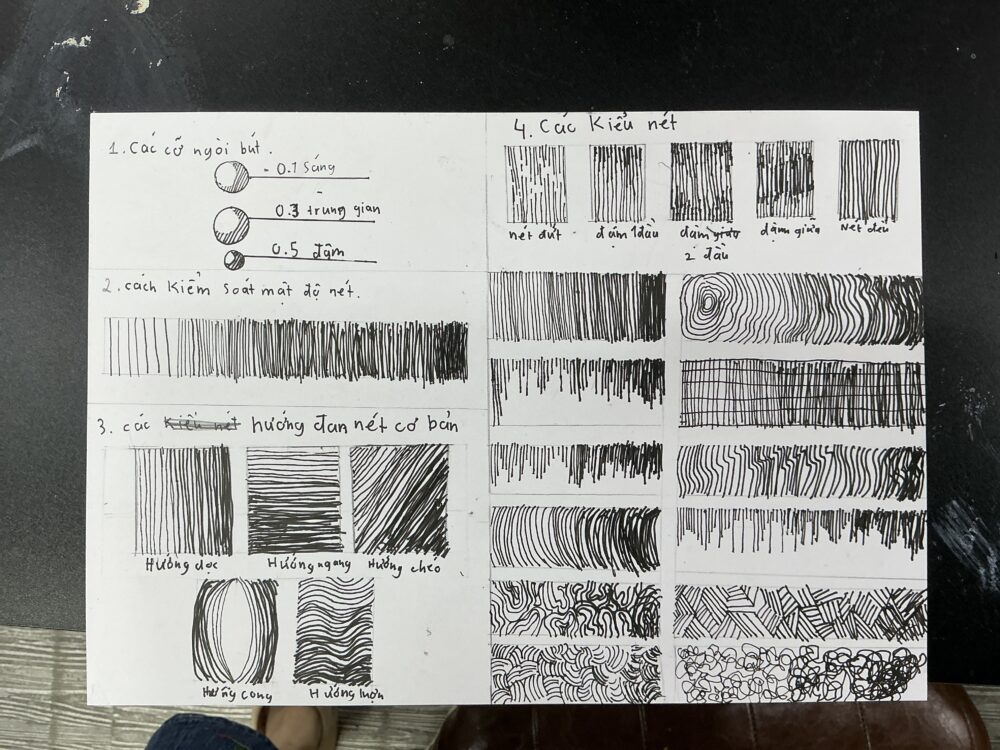 1. Các cỡ ngòi bút.
- 0.1 Sáng
0.3 trung gian
0.5 đậm
2. cách kiểm soát mật độ nét.
3. các kiểu nét hướng đan nét cơ bản
Hướng dọc
Hướng ngang
Hướng chéo
Hướng cong
Hướng lượn
4. Các kiểu nét
nét đứt
đậm 1 đầu
đậm giữa
2 đầu
đậm giữa
Nét đều